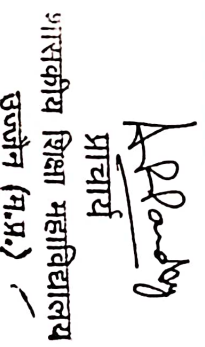 APPandey
प्राचार्य
शासकीय शिक्षा महाविद्यालय
उज्जैन (म.प्र.)